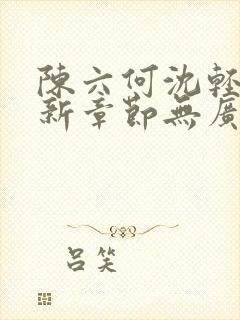 陳六何沈輕
新章節無廣
呂笑